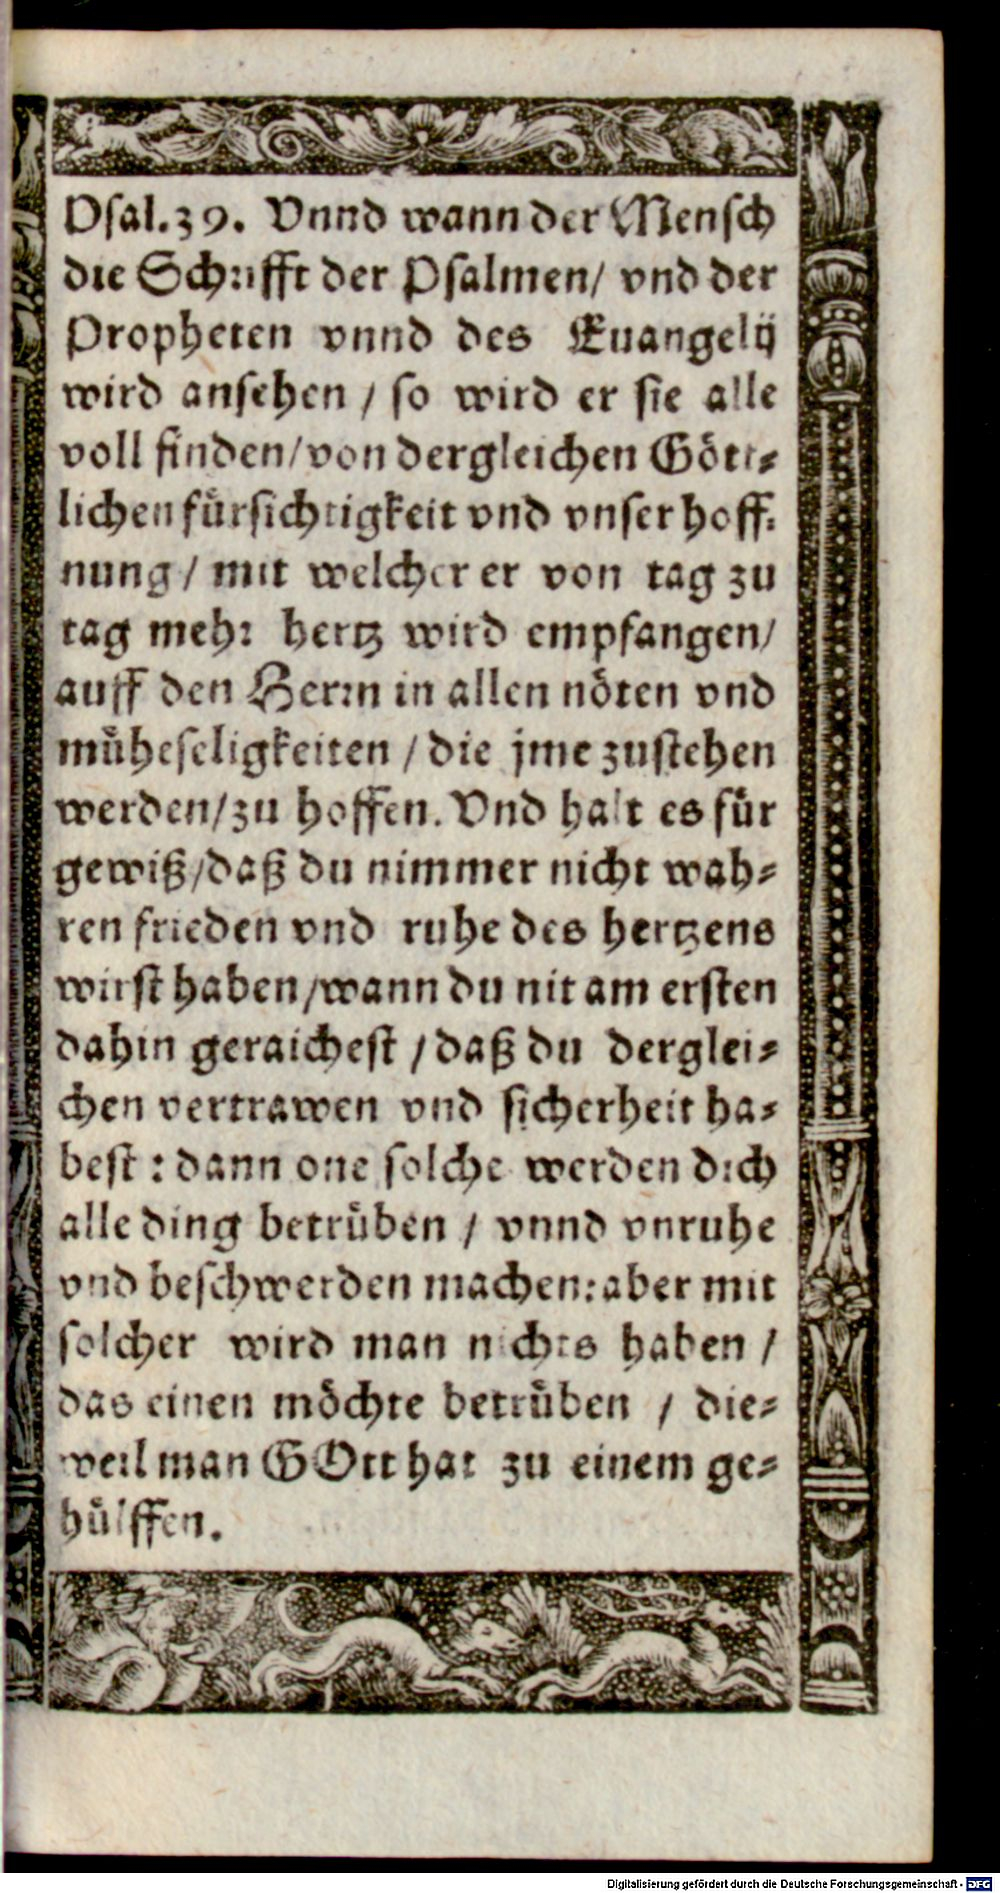 Psal.39. Vnnd wann der Mensch
die Schrifft der Psalmen/ vnd der
Propheten vnnd des Euangelij
wird ansehen / so wird er sie alle
voll finden/von dergleichen Gött-
lichen fürsichtigkeit vnd vnser hoff-
nung / mit welcher er von tag zu
tag mehr hertz wird empfangen/
auff den Herrn in allen nöten vnd
müheseligkeiten / die jme zustehen
werden/zu hoffen. Vnd halt es für
gewiß/daß du nimmer nicht wah-
ren frieden vnd ruhe des hertzens
wirst haben/wann du nit am ersten
dahin geraichest / daß du derglei-
chen vertrawen vnd sicherheit ha-
best : dann one solche werden dich
alle ding betrüben / vnnd vnruhe
vnd beschwerden machen: aber mit
solcher wird man nichts haben /
das einen möchte betrüben / die-
weil man GOtt hat zu einem ge-
hülffen.
Digitalisierung gefördert durch die Deutsche Forschungsgemeinschaft - DFG